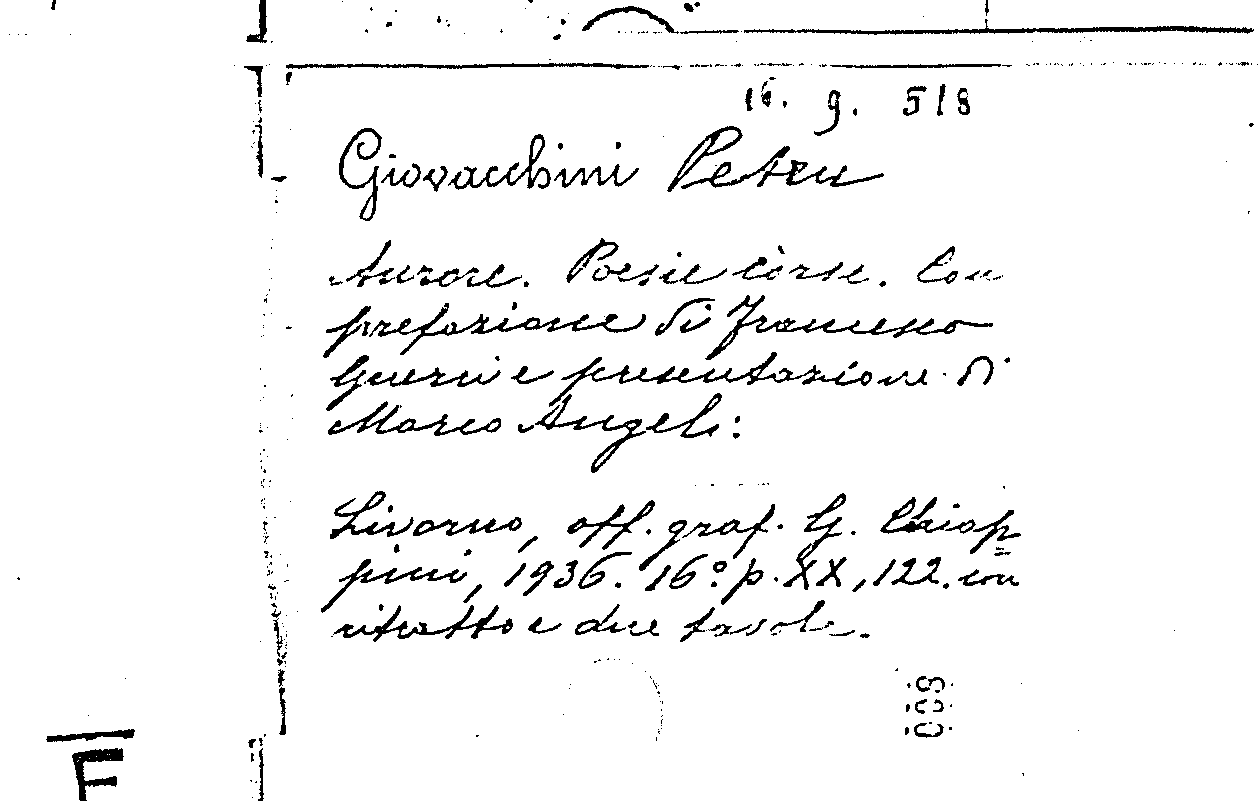 16. 9. 518
Giovacchini Petru
Aurore. Poesie còrse. Con
prefazione di Francesco
Guerri e presentazione di
Marco Angeli:
Livorno, off. graf. G. Chiap=
pini, 1936. 16º p. XX, 122. con
ritratto e due tavole.
008
F